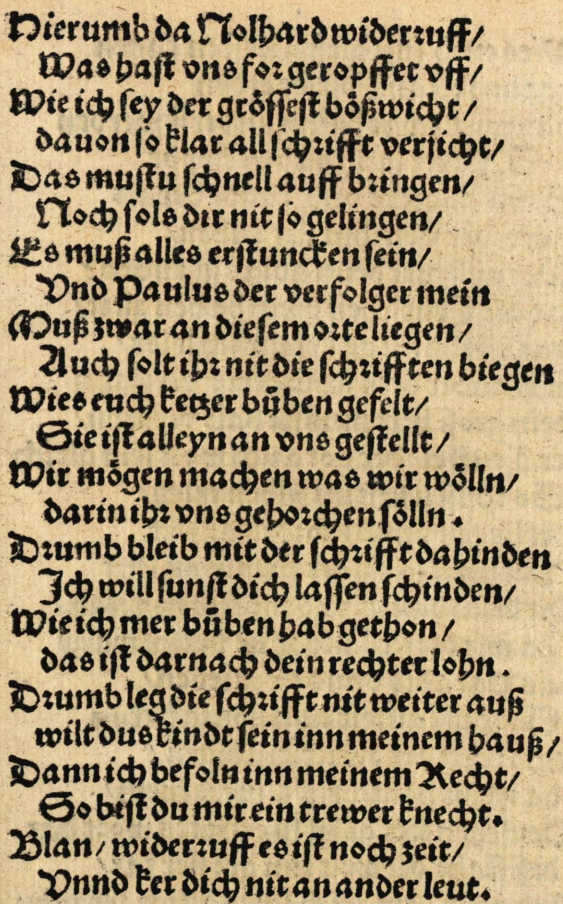 Hierumb da Nolhard widerruff/
Was hast vns for geropffet vff/
Wie ich sey der grössest bößwicht/
dauon so klar all schrifft verjicht/
Das mustu schnell auff bringen/
Noch sols dir nit so gelingen/
Es muß alles erstuncken sein/
Vnd Paulus der verfolger mein
Muß zwar an diesem orte liegen/
Auch solt ihr nit die schrifften biegen
Wies euch ketzer bůben gefelt/
Sie ist alleyn an vns gestellt/
Wir mögen machen was wir wölln/
darin ihr vns gehorchen sölln.
Drumb bleib mit der schrifft dahinden
Ich will sunst dich lassen schinden/
Wie ich mer bůben hab gethon/
das ist darnach dein rechter lohn.
Drumb leg die schrifft nit weiter auß
wilt dus kindt sein inn meinem hauß/
Dann ich befoln inn meinem Recht/
So bist du mir ein trewer knecht.
Blan/ widerruff es ist noch zeit/
Vnnd ker dich nit an ander leut.